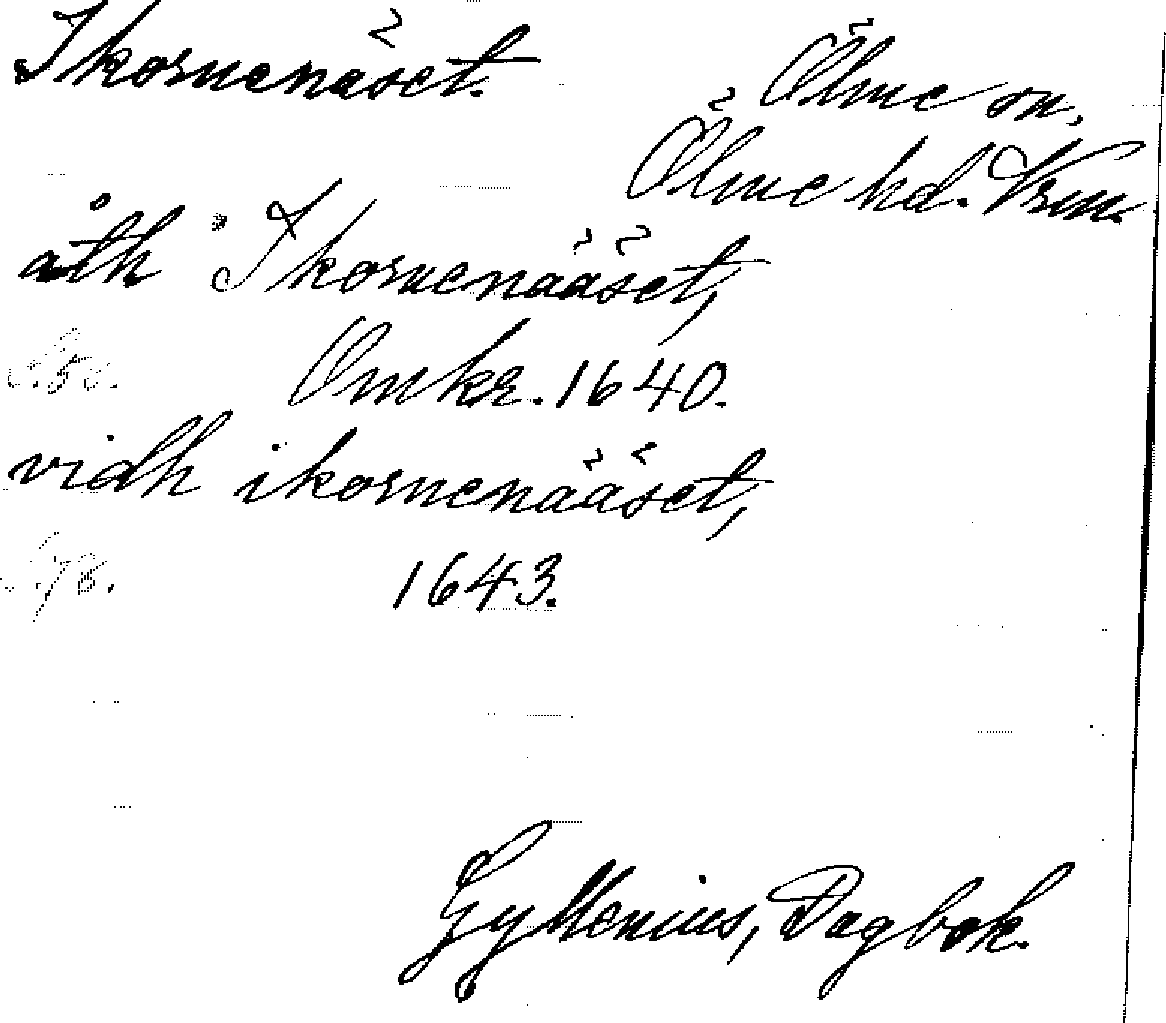 Ikornenäset.
Ölme sn,
Ölme hd. Vrm.
åth Ikornenääset,
Omkr. 1640.
vidh ikornenääset,
S. 78. 1643.
Gyllenius, Dagbok.